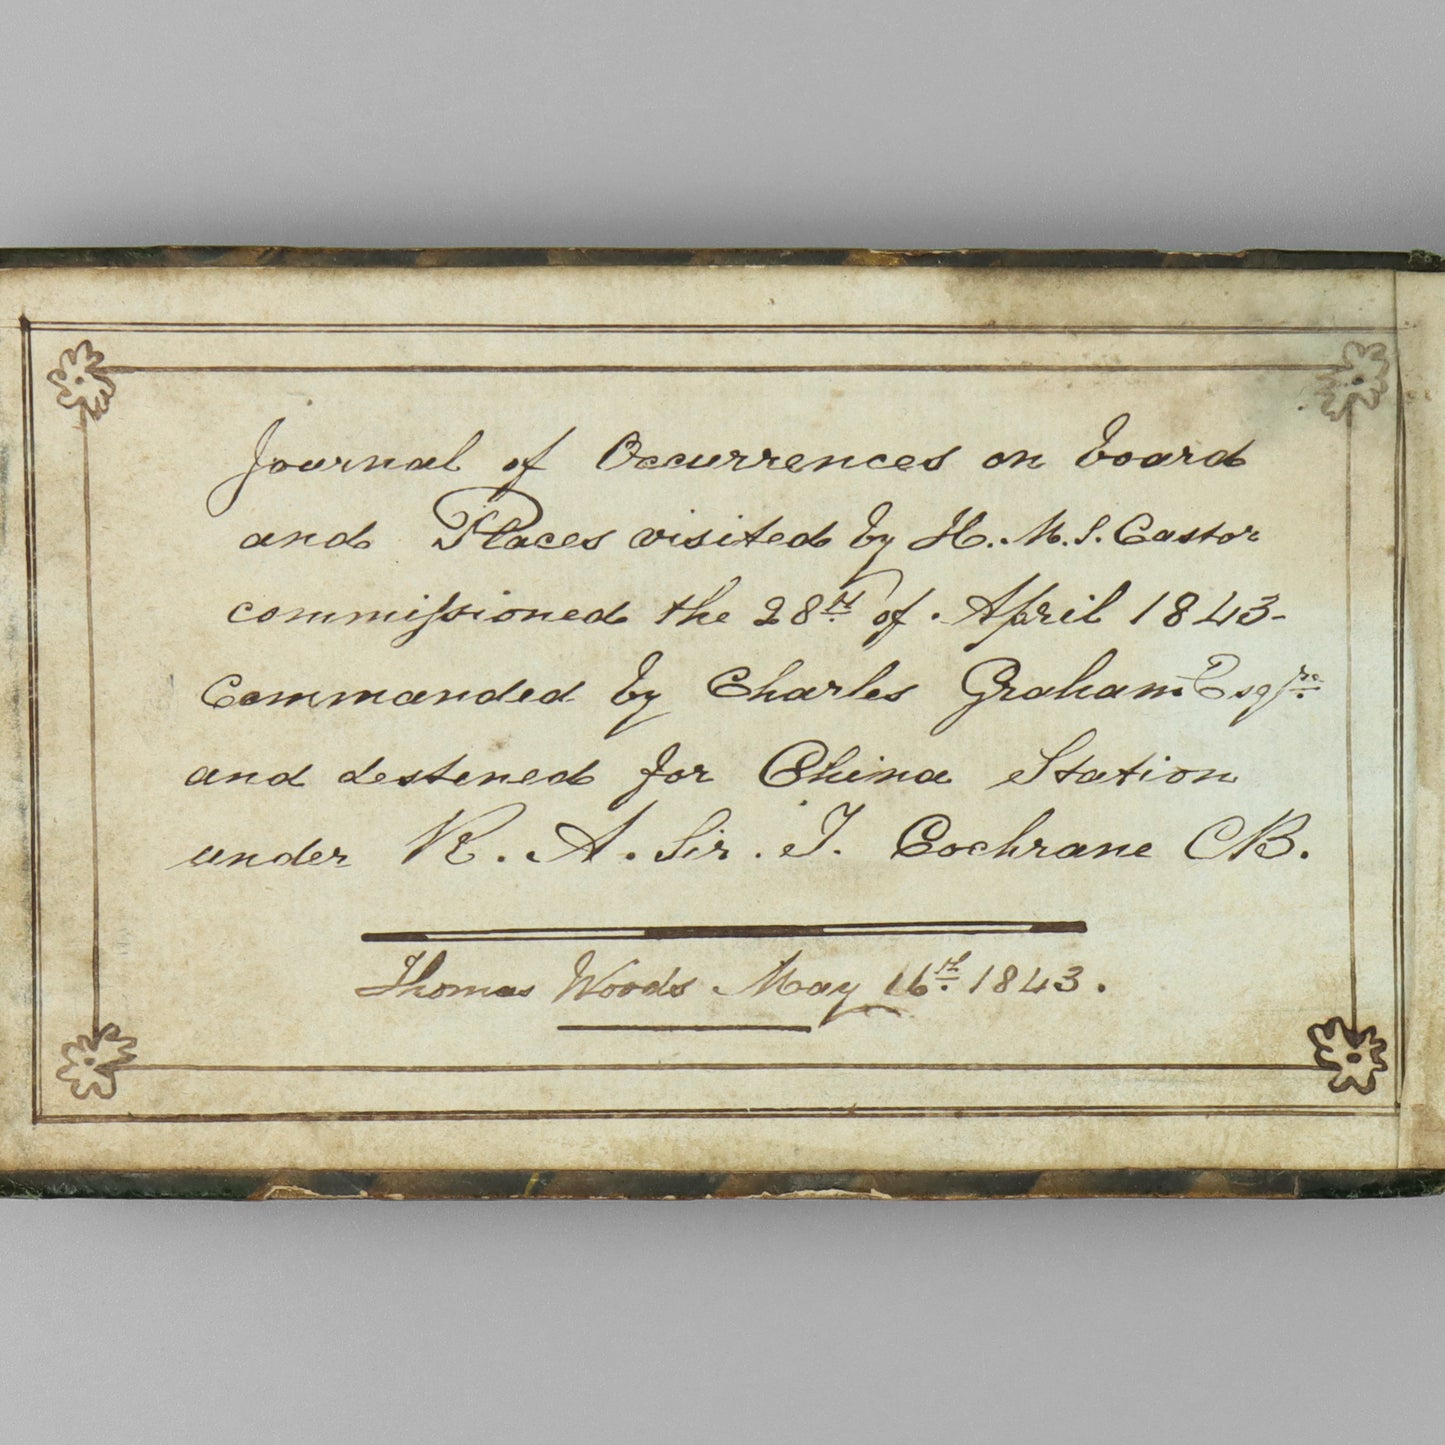 Journal of Occurrences on board
and Places visited by H. M. S. Castor
commiſsioned the 28th of April 1843-
Commanded by Charles Graham Esqre
and destened for China Station
under R. A. Sir. T. Cochrane CB.
Thomas Woods May 16th 1843.